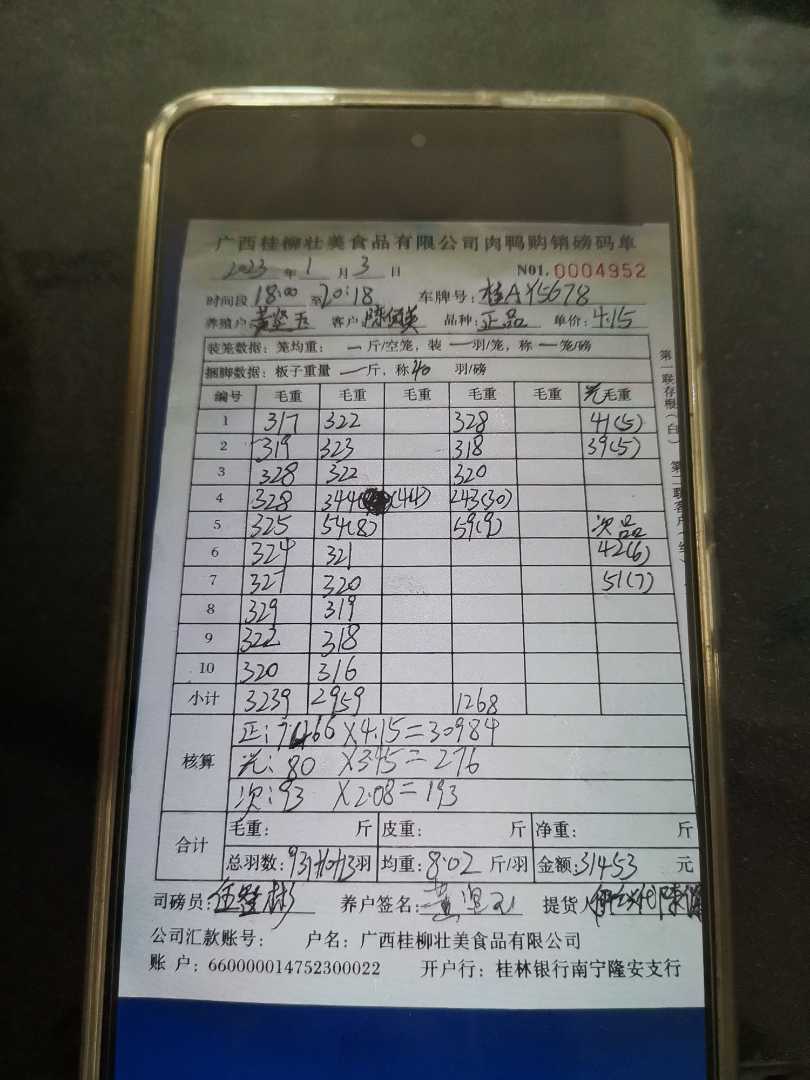 广西桂柳壮美食品有限公司肉鸭购销磅码单
2023 年 1 月 3 日 NO1. 0004952
时间段 18:00 至 20:18 车牌号: 桂AY5678
养殖户: 黄坚玉 客户: 品种: 正品 单价: 4.15
装笼数据: 笼均重: 一 斤/空笼, 装 一 羽/笼, 称 一 笼/磅
捆脚数据: 板子重量 一 斤, 称 40 羽/磅
编号 毛重 毛重 毛重 毛重 毛重 光毛重
1 317 322 328 41(5)
2 319 323 318 39(5)
3 328 322 320
4 328 344 (44) 243(30)
5 325 54(8) 59(9) 次品
6 324 321 42(6)
7 327 320 51(7)
8 329 319
9 322 318
10 320 316
小计 3239 2959 1268
核算
正: 7466 X 4.15 = 30984
光: 80 X 3.45 = 276
次: 93 X 2.08 = 193
合计
毛重: 斤 皮重: 斤 净重: 斤
总羽数: 931+10+13 羽 均重: 8.02 斤/羽 金额: 31453 元
司磅员: 养户签名: 黄坚玉 提货人
公司汇款账号: 户名: 广西桂柳壮美食品有限公司
账 户: 660000014752300022 开户行: 桂林银行南宁隆安支行
第一联存根(白) 第二联客户(红)